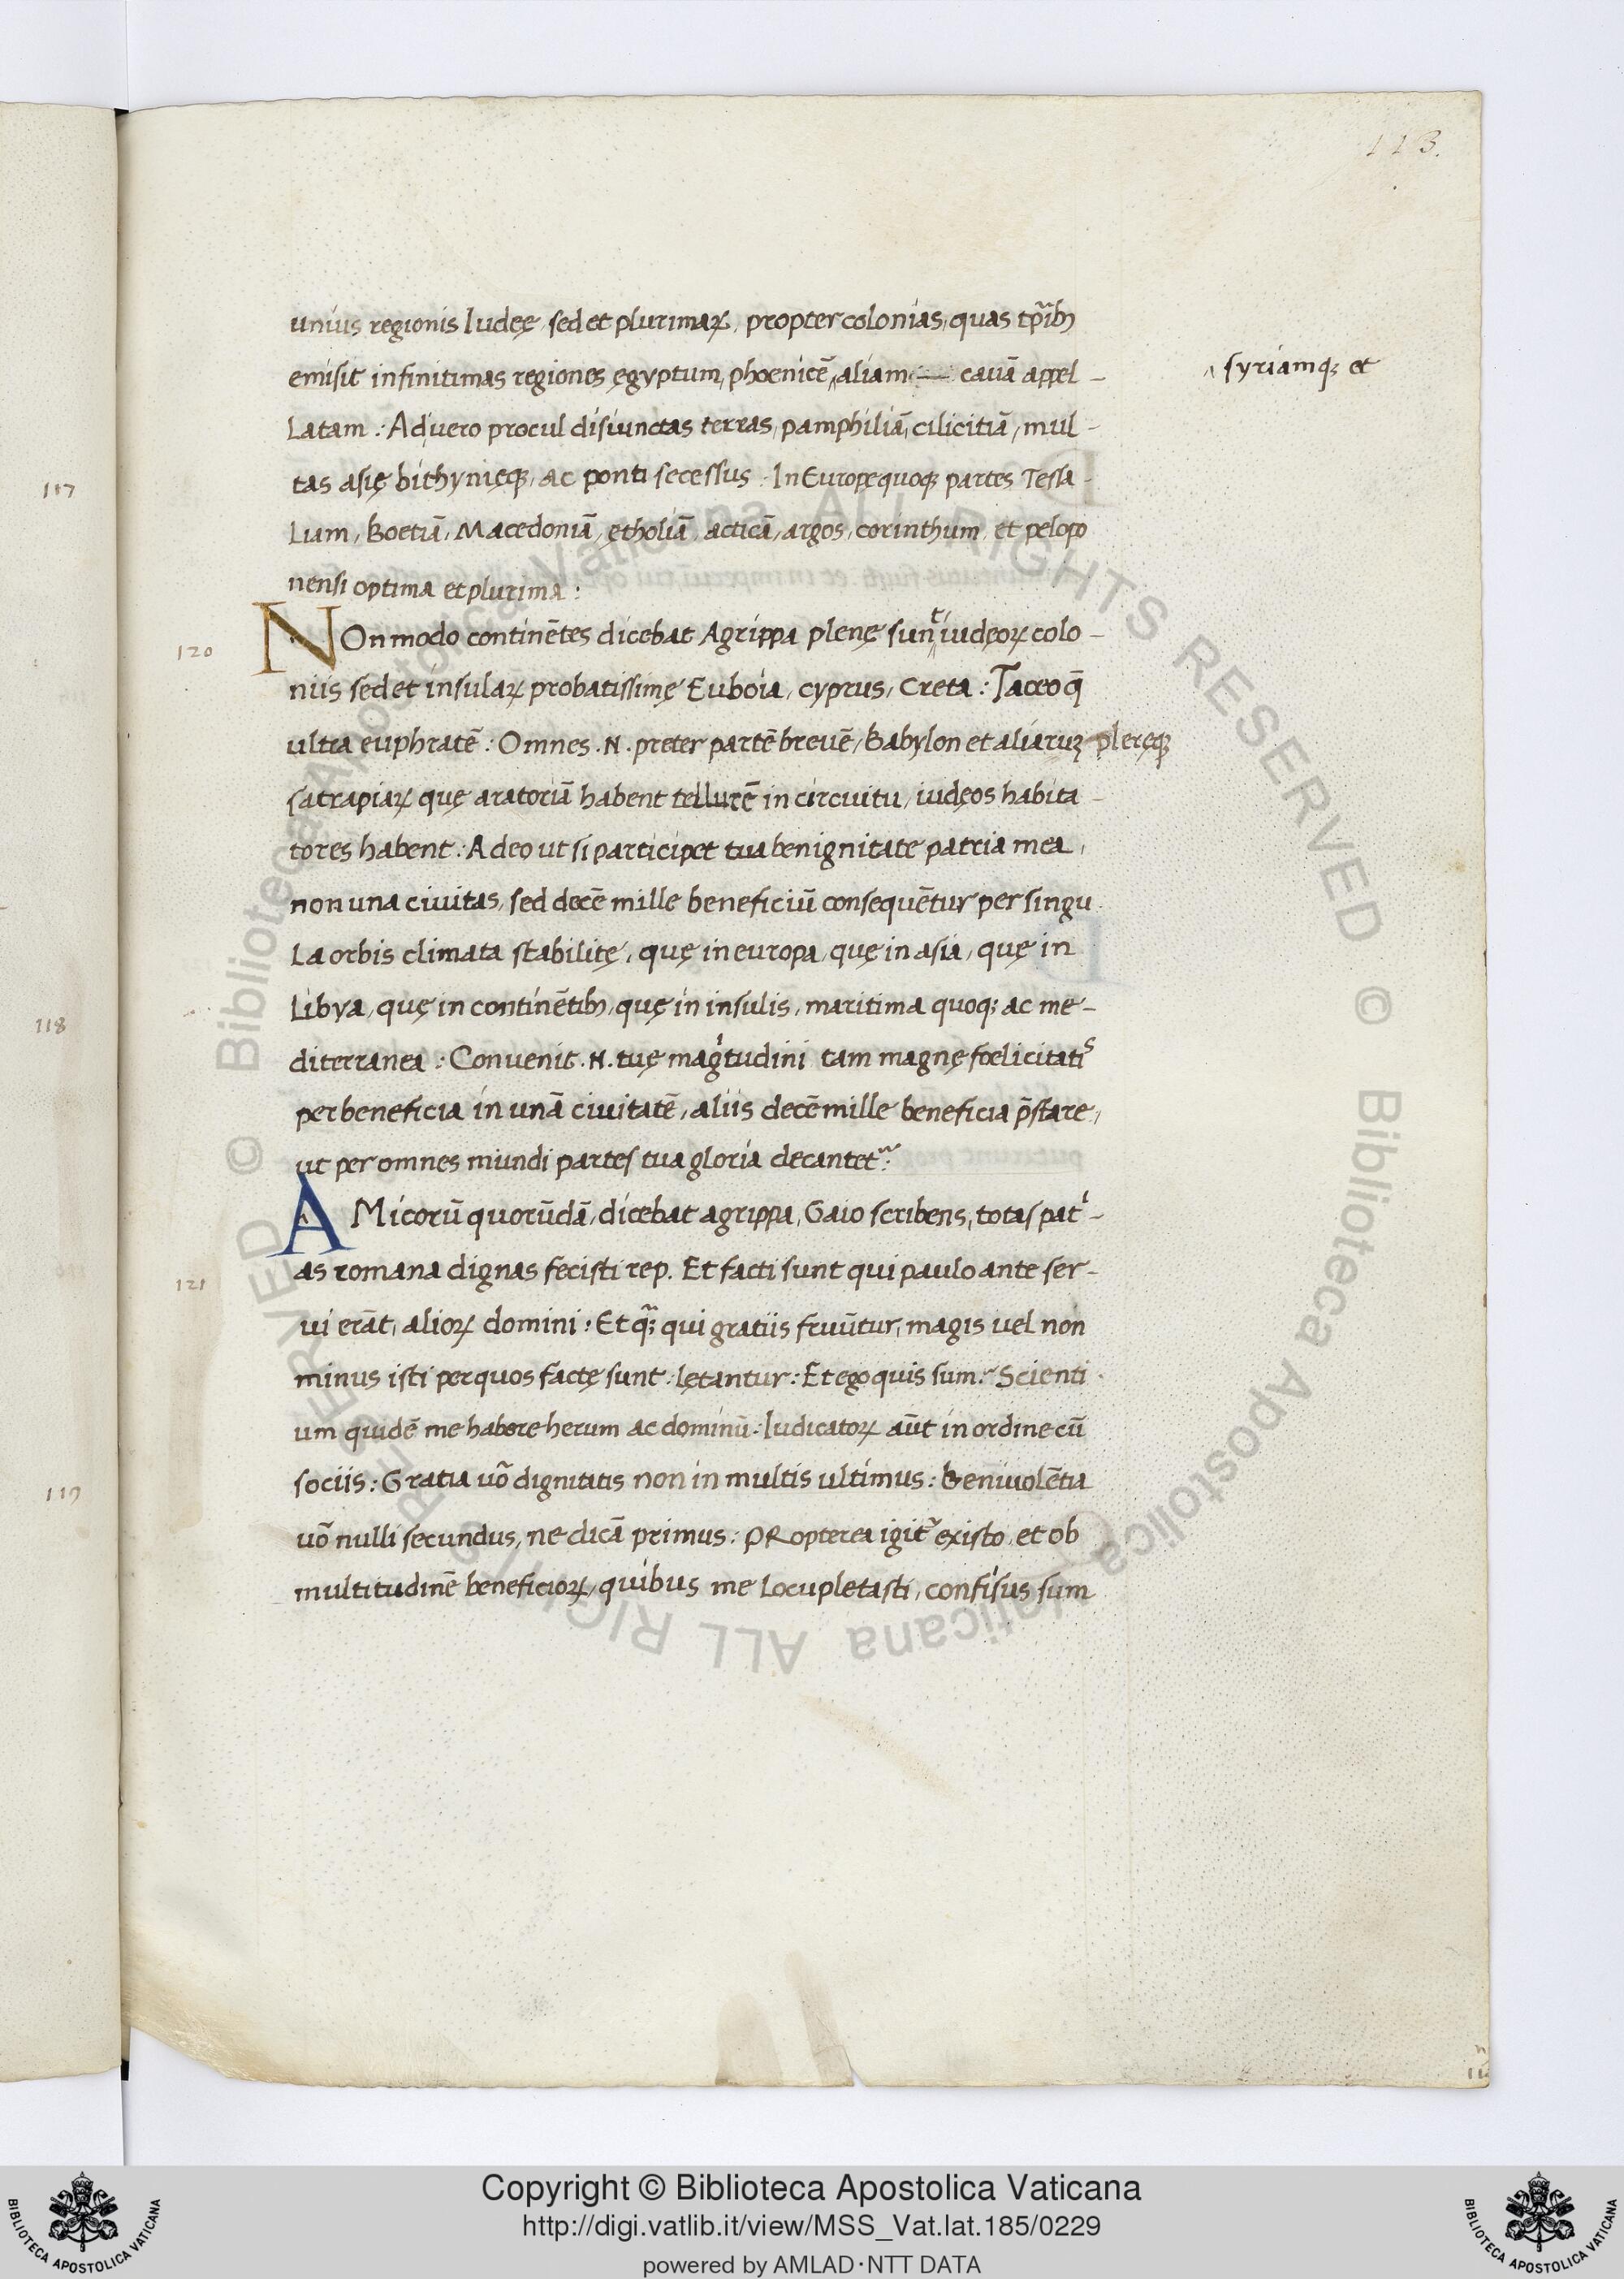 113.
unius regionis Iudeę, sed et plurimaꝝ, propter colonias, quas tp̃ib₉
emisit in finitimas regiones ęgyptum, phoenicē, aliam cauā appel-
syriamq; et
Latam: Ad uero procul disiunctas terras, pamphiliā, cilicitiā, mul-
117
tas asię bithynięq;, ac ponti secessus. In Europę quoq; partes Tessa-
Lum, Boetiā, Macedoniā, ętholiā, acticā, argos, corinthum, et pelopo
nensi optima et plurima:
120
NOn modo continētes dicebat Agrippa plenę sunt iudęoꝝ colo-
niis sed et insulaꝝ probatissimę Euboia, cyprus, Creta: Taceo q̄
ultra euphratē: Omnes .N. preter partē brevē, Babylon et aliaruꝫ pleręq;
satrapiaꝝ quę aratoriā habent tellurē in circuitu, iudęos habita-
tores habent: Adeo ut si participet tua benignitate patria mea,
non una ciuitas, sed decē mille beneficiū consequētur per singu
La orbis climata stabilitę, quę in europa, quę in asia, quę in
Libya, quę in continētib₉, quę in insulis, maritima quoq; ac me-
118
diterranea: Convenit .N. tuę magͥtudini tam magnę foelicitatis
per beneficia in unā ciuitatē, aliis decē mille beneficia p̄stare,
ut per omnes mundi partes tua gloria decantet᷑:
AMicorū quorūdā, dicebat agrippa, Gaio scribens, totas patͥ-
121
as romana dignas fecisti rep. Et facti sunt qui paulo ante ser-
ui erāt, alioꝝ domini: Et q̃; qui gratiis fruūtur, magis uel non
minus isti per quos factę sunt: lętantur: Et ego quis sum: Scienti
um quidē me habere herum ac dominū: Iudicatoꝝ aūt in ordine cū
119
sociis: Gratia uō dignitatis non in multis ultimus: Beniuolētia
uō nulli secundus, ne dicā primus: PRopterea igit᷑ existo, et ob
multitudinē beneficioꝝ, quibus me Locupletasti, confisus sum
Copyright © Biblioteca Apostolica Vaticana
http://digi.vatlib.it/view/MSS_Vat.lat.185/0229
powered by AMLAD·NTT DATA
BIBLIOTECA APOSTOLICA VATICANA
BIBLIOTECA APOSTOLICA VATICANA
© Biblioteca Apostolica Vaticana ALL RIGHTS RESERVED © Biblioteca Apostolica Vaticana ALL RIGHTS RESERVED